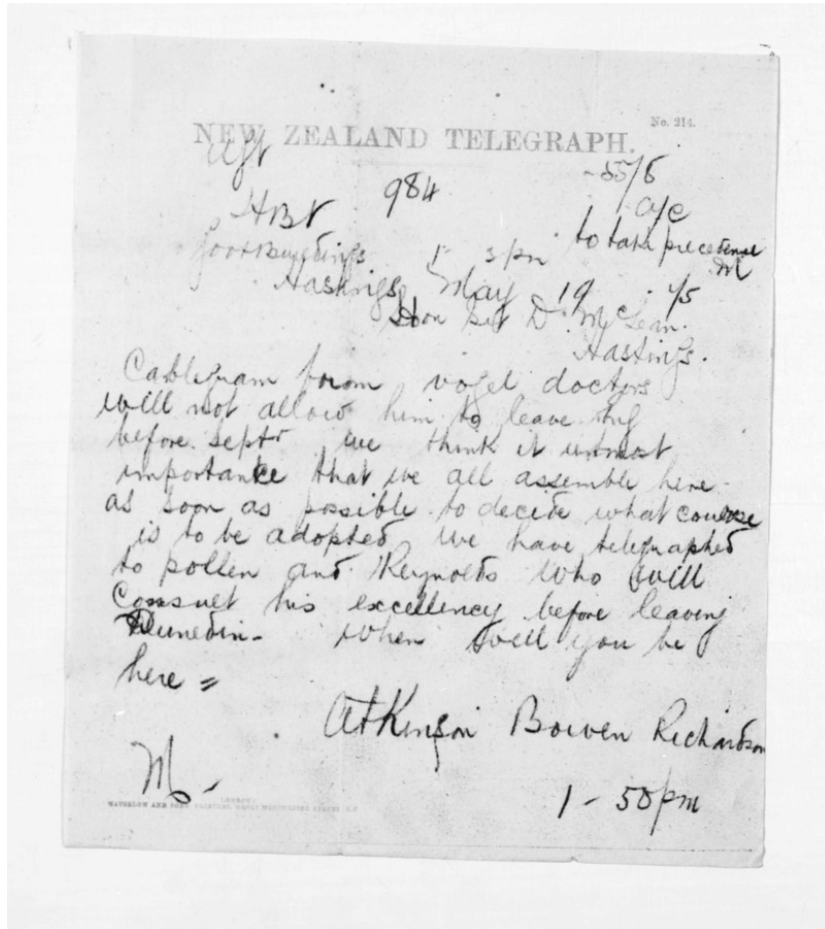 No. 214.
NEW ZEALAND TELEGRAPH.
984
a/c
to take precedence
M
Govt Buildings 1 5 pm
Hastings May 19 75
Hon Sir D. McLean.
Hastings.
Cablegram from vogel doctors
will not allow him to leave
before Septr we think it utmost
importance that we all assemble here
as soon as possible to decide what course
is to be adopted we have telegraphed
to pollen and Reynolds who will
Consult his excellency before leaving
Dunedin - when will you be
here =
Atkinson Bowen Richardson
M -
1 - 50 pm